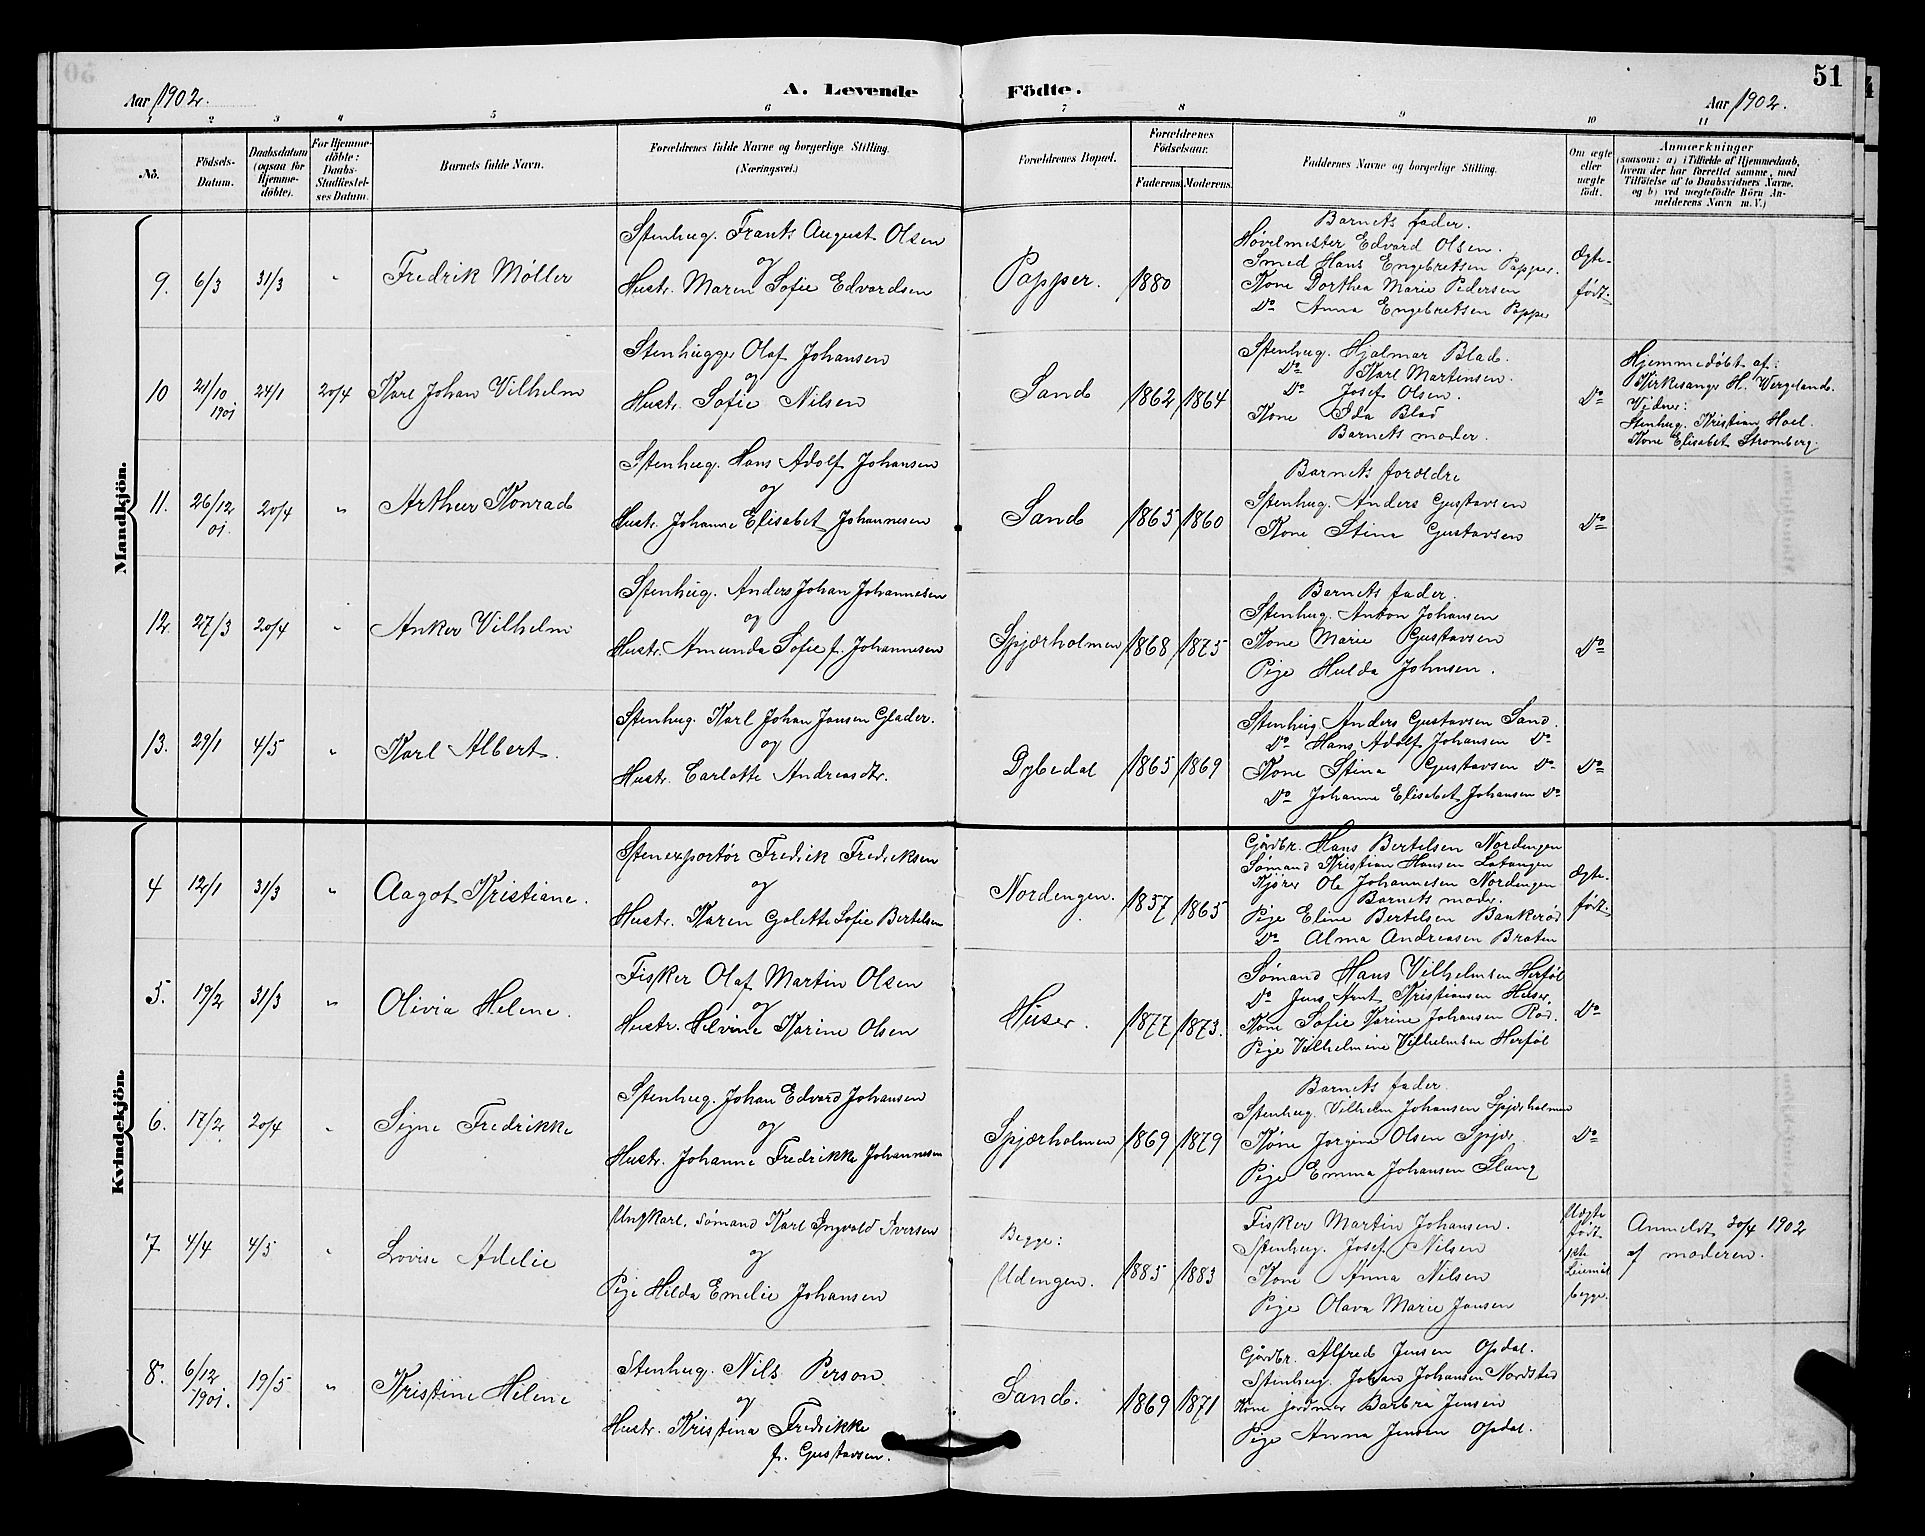 Aar 1902.
A. Levende Födte.
51
Aar 1902.
1 2 3 4 5 6 7 8 9 10 11
No.
Födsels-Datum.
Daabsdatum (ogsaa for Hjemme-döbte).
For Hjemme-döbte: Daabs-Stadfæstel-ses Datum.
Barnets fulde Navn.
Forældrenes fulde Navne og borgerlige Stilling. (Næringsvei.)
Forældrenes Bopæl.
Forældrenes Födselsaar.
Faderens. Moderens.
Faddernes Navne og borgerlige Stilling.
Om ægte eller uægte födt.
Anmærkninger
(saasom: a) i Tilfælde af Hjemmedaab,
hvem der har forrettet samme, med
Tilföielse af to Daabsvidners Navne,
og b) ved uegtefödte Börn An-
melderens Navn m. V.)
Mandkjön.
9. 6/3 31/3 " Fredrik Möller
Stenhug. Frants August Olsen
og
Hustr. Maren Sofie Edvardsen
Papper. 1880
Barnets fader.
Høvelmester Edvard Olsen.
Smed Hans Engebretsen Papper.
Kone Dorthea Marie Pedersen
Do Anna Engebretsen Papper
Ægte-
født.
10 21/10 1901 24/1 20/4 Karl Johan Vilhelm
Stenhugger Olaf Johansen
og
Hustr. Sofie Nilsen
Sand 1862 1864
Stenhug. Hjalmar Blad.
Do Karl Martinsen.
Do Josef Olsen.
Kone Ida Blad
Barnets moder.
Do
Hjemmedøbt af:
Kirkesanger H. Vergeland.
Vidner:
Stenhug. Kristian Hoel.
Kone Elisabet Stromberg.
11. 26/12 01. 20/4 " Arthur Konrad
Stenhug. Hans Adolf Johansen
og
Hustr. Johanne Elisabet Johannesen
Sand 1865 1860
Barnets forældre
Stenhug. Anders Gustavsen
Kone Stina Gustavsen
Do
12. 27/3 20/4 " Anker Vilhelm
Stenhug. Anders Johan Johannesen
og
Hustr. Amunda Sofie f. Johannesen
Spjærholmen 1868 1875
Barnets fader.
Stenhug. Anton Johansen
Kone Marie Gustavsen
Pige Hulda Johnsen.
Do
13. 29/1 4/5 " Karl Albert.
Stenhug. Karl Johan Jansen Glader.
og
Hustr. Carlotte Andreasdtr.
Dybedal 1865 1869
Stenhug Anders Gustavsen Sand.
Do Hans Adolf Johansen Do
Kone Stina Gustavsen Do
Do Johanne Elisabet Johansen Do
Do
Kvindekjön.
4 12/1 31/3 " Aagot Kristiane.
Stenexportör Fredrik Fredriksen
og
Hustr. Karen Golette Sofie Bertelsen
Nordengen. 1857 1865
Gårdbr. Hans Bertelsen Nordengen
Sømand Kristian Hansen Løtangen
Kjörer Ole Johannesen Nordengen
Barnets moder.
Pige Eline Bertelsen Bankerød
Do Alma Andreasen Braten
Ægte-
født.
5. 19/2 31/3 " Olivia Helene.
Fisker Olaf Martin Olsen
og
Hustr. Helvine Karine Olsen
Huser. 1877 1873.
Sømand Hans Vilhelmsen Herføl
Do Jens Arnt Kristiansen Huser.
Kone Sofie Karine Johansen Rød.
Pige Vilhelmine Vilhelmsen Herføl
Do
6. 17/2. 20/4 " Signe Fredrikke
Stenhug. Johan Edvard Johansen
og
Hustr. Johanne Fredrikke Johannesen
Spjærholmen 1869 1879
Barnets fader.
Stenhug. Vilhelm Johansen Spjærholmen
Kone Jorgine Olsen Spjær
Pige Emma Johansen Slang
Do
7 4/4 4/5 " Lovise Adelie
Ungkarl, sømand Karl Ingvald Iversen
og
Pige Hilda Emilie Johansen
Begge:
Udengen. 1885 1883
Fisker Martin Johansen.
Stenhug. Josef Nilsen
Kone Anna Nilsen
Pige Olava Marie Jansen
Uægte
født
1ste
Leiemål
begge.
Anmeldt 30/4 1902
af moderen.
8. 6/12 1901. 19/5 " Kristine Helene
Stenhug. Nils Person
og
Hustr. Kristina Fredrikke
f. Gustavsen.
Sand. 1869 1871
Gårdbr. Alfred Jensen Opdal.
Stenhug. Johan Johansen Nordsted
Kone jordmor Barbra Jensen
Pige Anna Jensen Opdal.